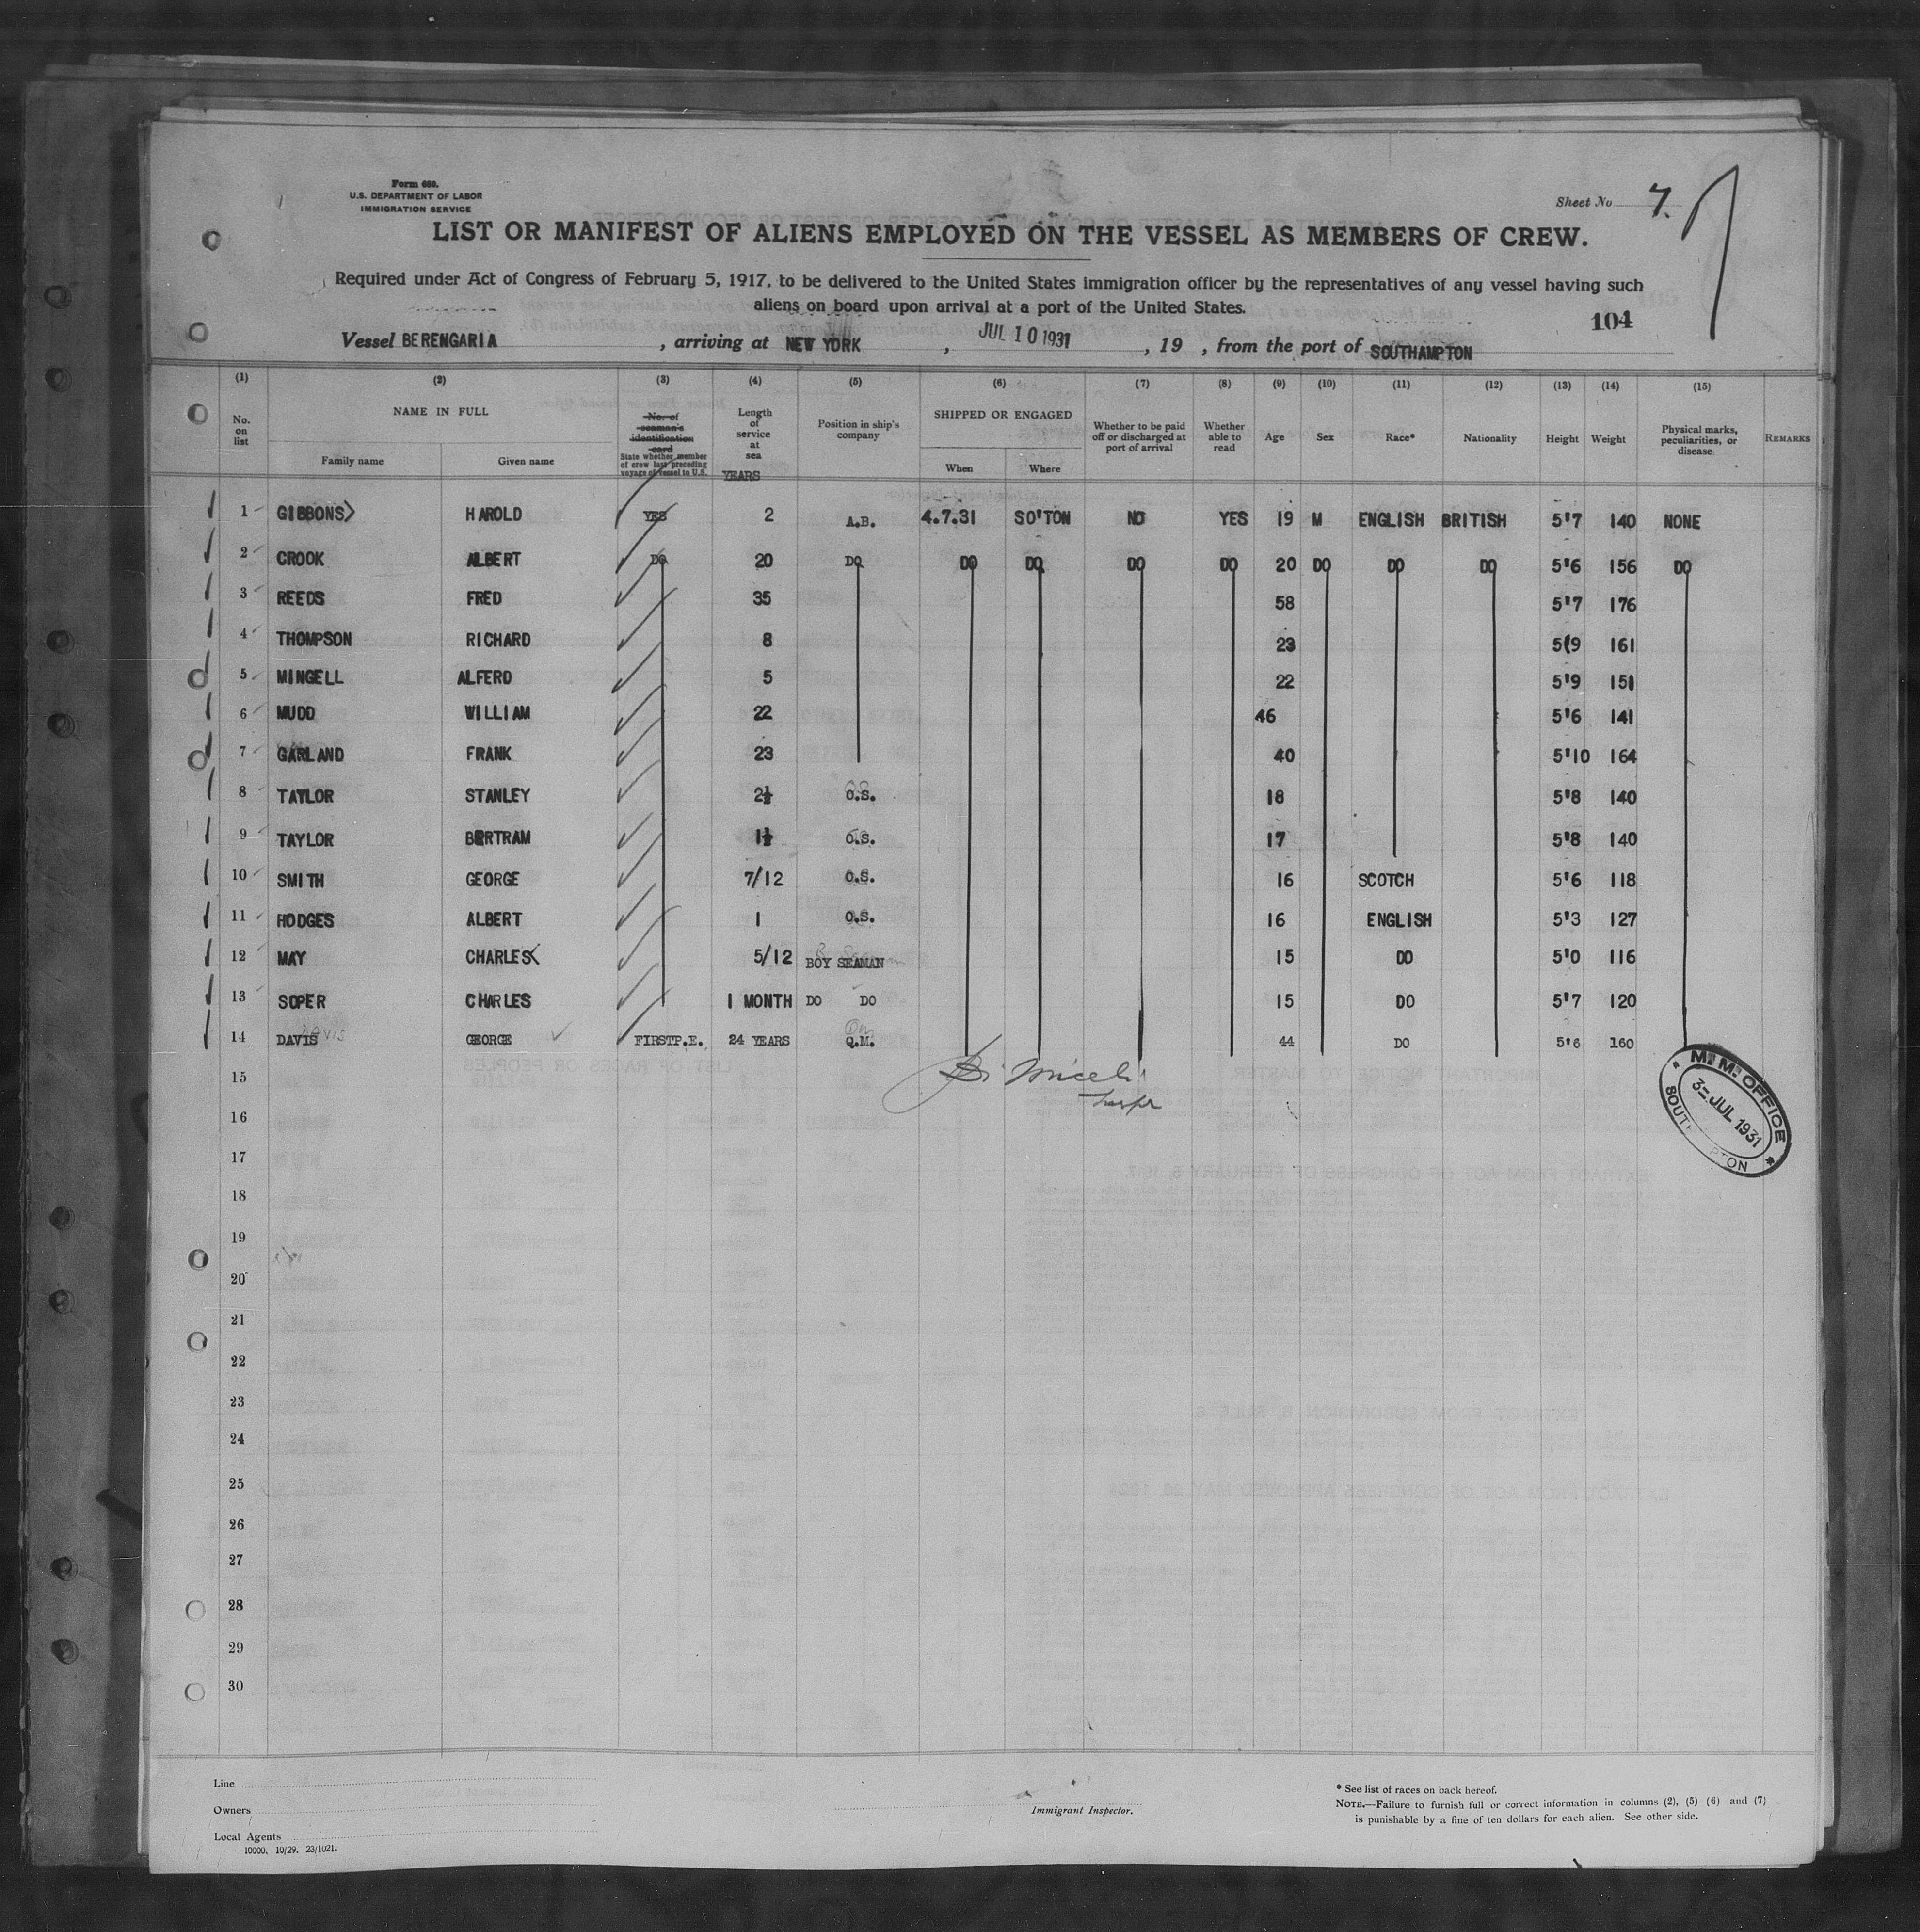 Form 680.
U.S. DEPARTMENT OF LABOR
IMMIGRATION SERVICE
Sheet No 7.
LIST OR MANIFEST OF ALIENS EMPLOYED ON THE VESSEL AS MEMBERS OF CREW.
Required under Act of Congress of February 5, 1917, to be delivered to the United States immigration officer by the representatives of any vessel having such
aliens on board upon arrival at a port of the United States.
104
Vessel BERENGARIA, arriving at NEW YORK, JUL 10 1931, 19 , from the port of SOUTHAMPTON
(1) (2) (3) (4) (5) (6) (7) (8) (9) (10) (11) (12) (13) (14) (15)
No. on list NAME IN FULL Family name Given name No. of seaman's identification card State whether member of crew last preceding voyage of vessel to U.S. Length of service at sea YEARS Position in ship's company SHIPPED OR ENGAGED When Where Whether to be paid off or discharged at port of arrival Whether able to read Age Sex Race* Nationality Height Weight Physical marks, peculiarities, or disease REMARKS
1 GIBBONS HAROLD YES 2 A.B. 4.7.31 SO'TON NO YES 19 M ENGLISH BRITISH 5'7 140 NONE
2 CROOK ALBERT DO 20 DO DO DO DO DO 20 DO DO DO 5'6 156 DO
3 REEDS FRED 35 58 5'7 176
4 THOMPSON RICHARD 8 23 5(9 161
5 MINGELL ALFERD 5 22 5'9 151
6 MUDD WILLIAM 22 46 5'6 141
7 GARLAND FRANK 23 40 5'10 164
8 TAYLOR STANLEY 2½ O.S. 18 5'8 140
9 TAYLOR BERTRAM 1½ O.S. 17 5'8 140
10 SMITH GEORGE 7/12 O.S. 16 SCOTCH 5'6 118
11 HODGES ALBERT 1 O.S. 16 ENGLISH 5'3 127
12 MAY CHARLES 5/12 BOY SEAMAN 15 DO 5'0 116
13 SOPER CHARLES 1 MONTH DO DO 15 DO 5'7 120
14 DAVIS GEORGE FIRSTP.E. 24 YEARS Q.M. 44 DO 5'6 160
15
16
17
18
19
20
21
22
23
24
25
26
27
28
29
30
M. M. OFFICE
3 - JUL 1931
Line
Owners
Local Agents
10000, 10/29. 23/1021.
Immigrant Inspector.
* See list of races on back hereof.
NOTE.—Failure to furnish full or correct information in columns (2), (5) (6) and (7)
is punishable by a fine of ten dollars for each alien. See other side.